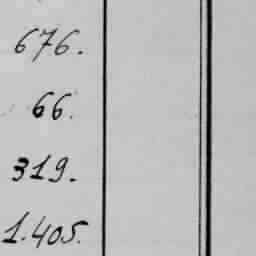 676.
66.
319.
1.405.